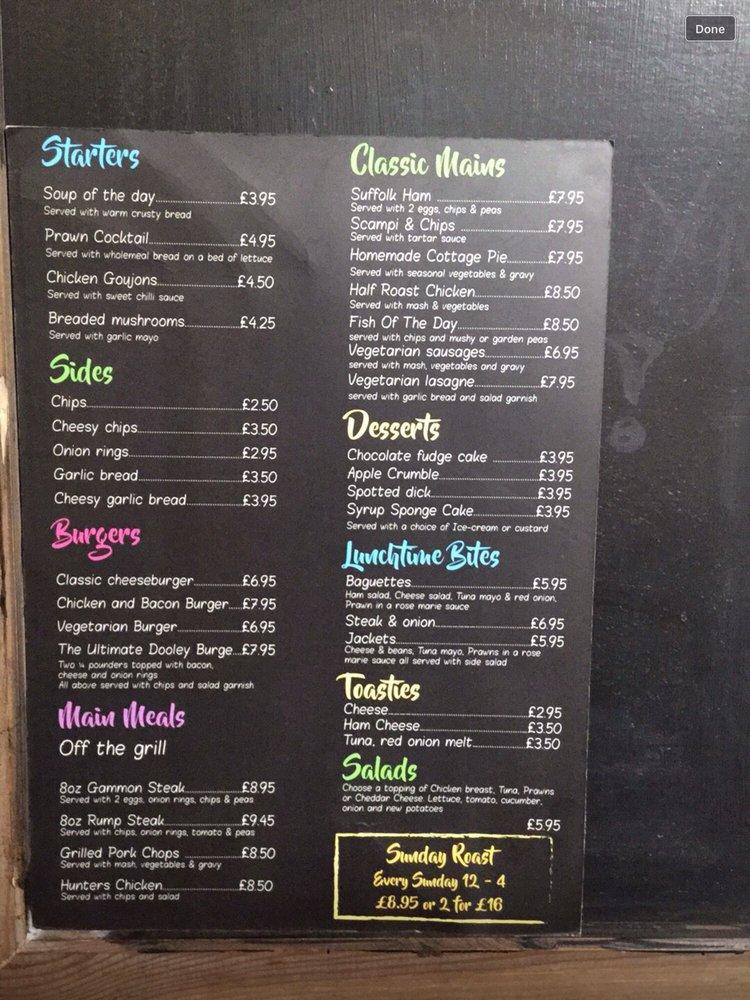 Done
Starters
Soup of the day....................£3.95
Served with warm crusty bread
Prawn Cocktail....................£4.95
Served with wholemeal bread on a bed of lettuce
Chicken Goujons....................£4.50
Served with sweet chilli sauce
Breaded mushrooms....................£4.25
Served with garlic mayo
Sides
Chips....................£2.50
Cheesy chips....................£3.50
Onion rings....................£2.95
Garlic bread....................£3.50
Cheesy garlic bread....................£3.95
Burgers
Classic cheeseburger....................£6.95
Chicken and Bacon Burger....£7.95
Vegetarian Burger....................£6.95
The Ultimate Dooley Burge...£7.95
Two ¼ pounders topped with bacon,
cheese and onion rings
All above served with chips and salad garnish
Main Meals
Off the grill
8oz Gammon Steak....................£8.95
Served with 2 eggs, onion rings, chips & peas
8oz Rump Steak....................£9.45
Served with chips, onion rings, tomato & peas
Grilled Pork Chops ....................£8.50
Served with mash, vegetables & gravy
Hunters Chicken....................£8.50
Served with chips and salad
Classic Mains
Suffolk Ham ....................£7.95
Served with 2 eggs, chips & peas
Scampi & Chips ....................£7.95
Served with tartar sauce
Homemade Cottage Pie............£7.95
Served with seasonal vegetables & gravy
Half Roast Chicken....................£8.50
Served with mash & vegetables
Fish Of The Day....................£8.50
served with chips and mushy or garden peas
Vegetarian sausages....................£6.95
served with mash, vegetables and gravy
Vegetarian lasagne....................£7.95
served with garlic bread and salad garnish
Desserts
Chocolate fudge cake ............£3.95
Apple Crumble....................£3.95
Spotted dick....................£3.95
Syrup Sponge Cake....................£3.95
Served with a choice of Ice-cream or custard
Lunchtime Bites
Baguettes....................£5.95
Ham salad, Cheese salad, Tuna mayo & red onion,
Prawn in a rose marie sauce
Steak & onion....................£6.95
Jackets....................£5.95
Cheese & beans, Tuna mayo, Prawns in a rose
marie sauce all served with side salad
Toasties
Cheese....................£2.95
Ham Cheese....................£3.50
Tuna, red onion melt....................£3.50
Salads
Choose a topping of Chicken breast, Tuna, Prawns
or Cheddar Cheese. Lettuce, tomato, cucumber,
onion and new potatoes
£5.95
Sunday Roast
Every Sunday 12 - 4
£8.95 or 2 for £16